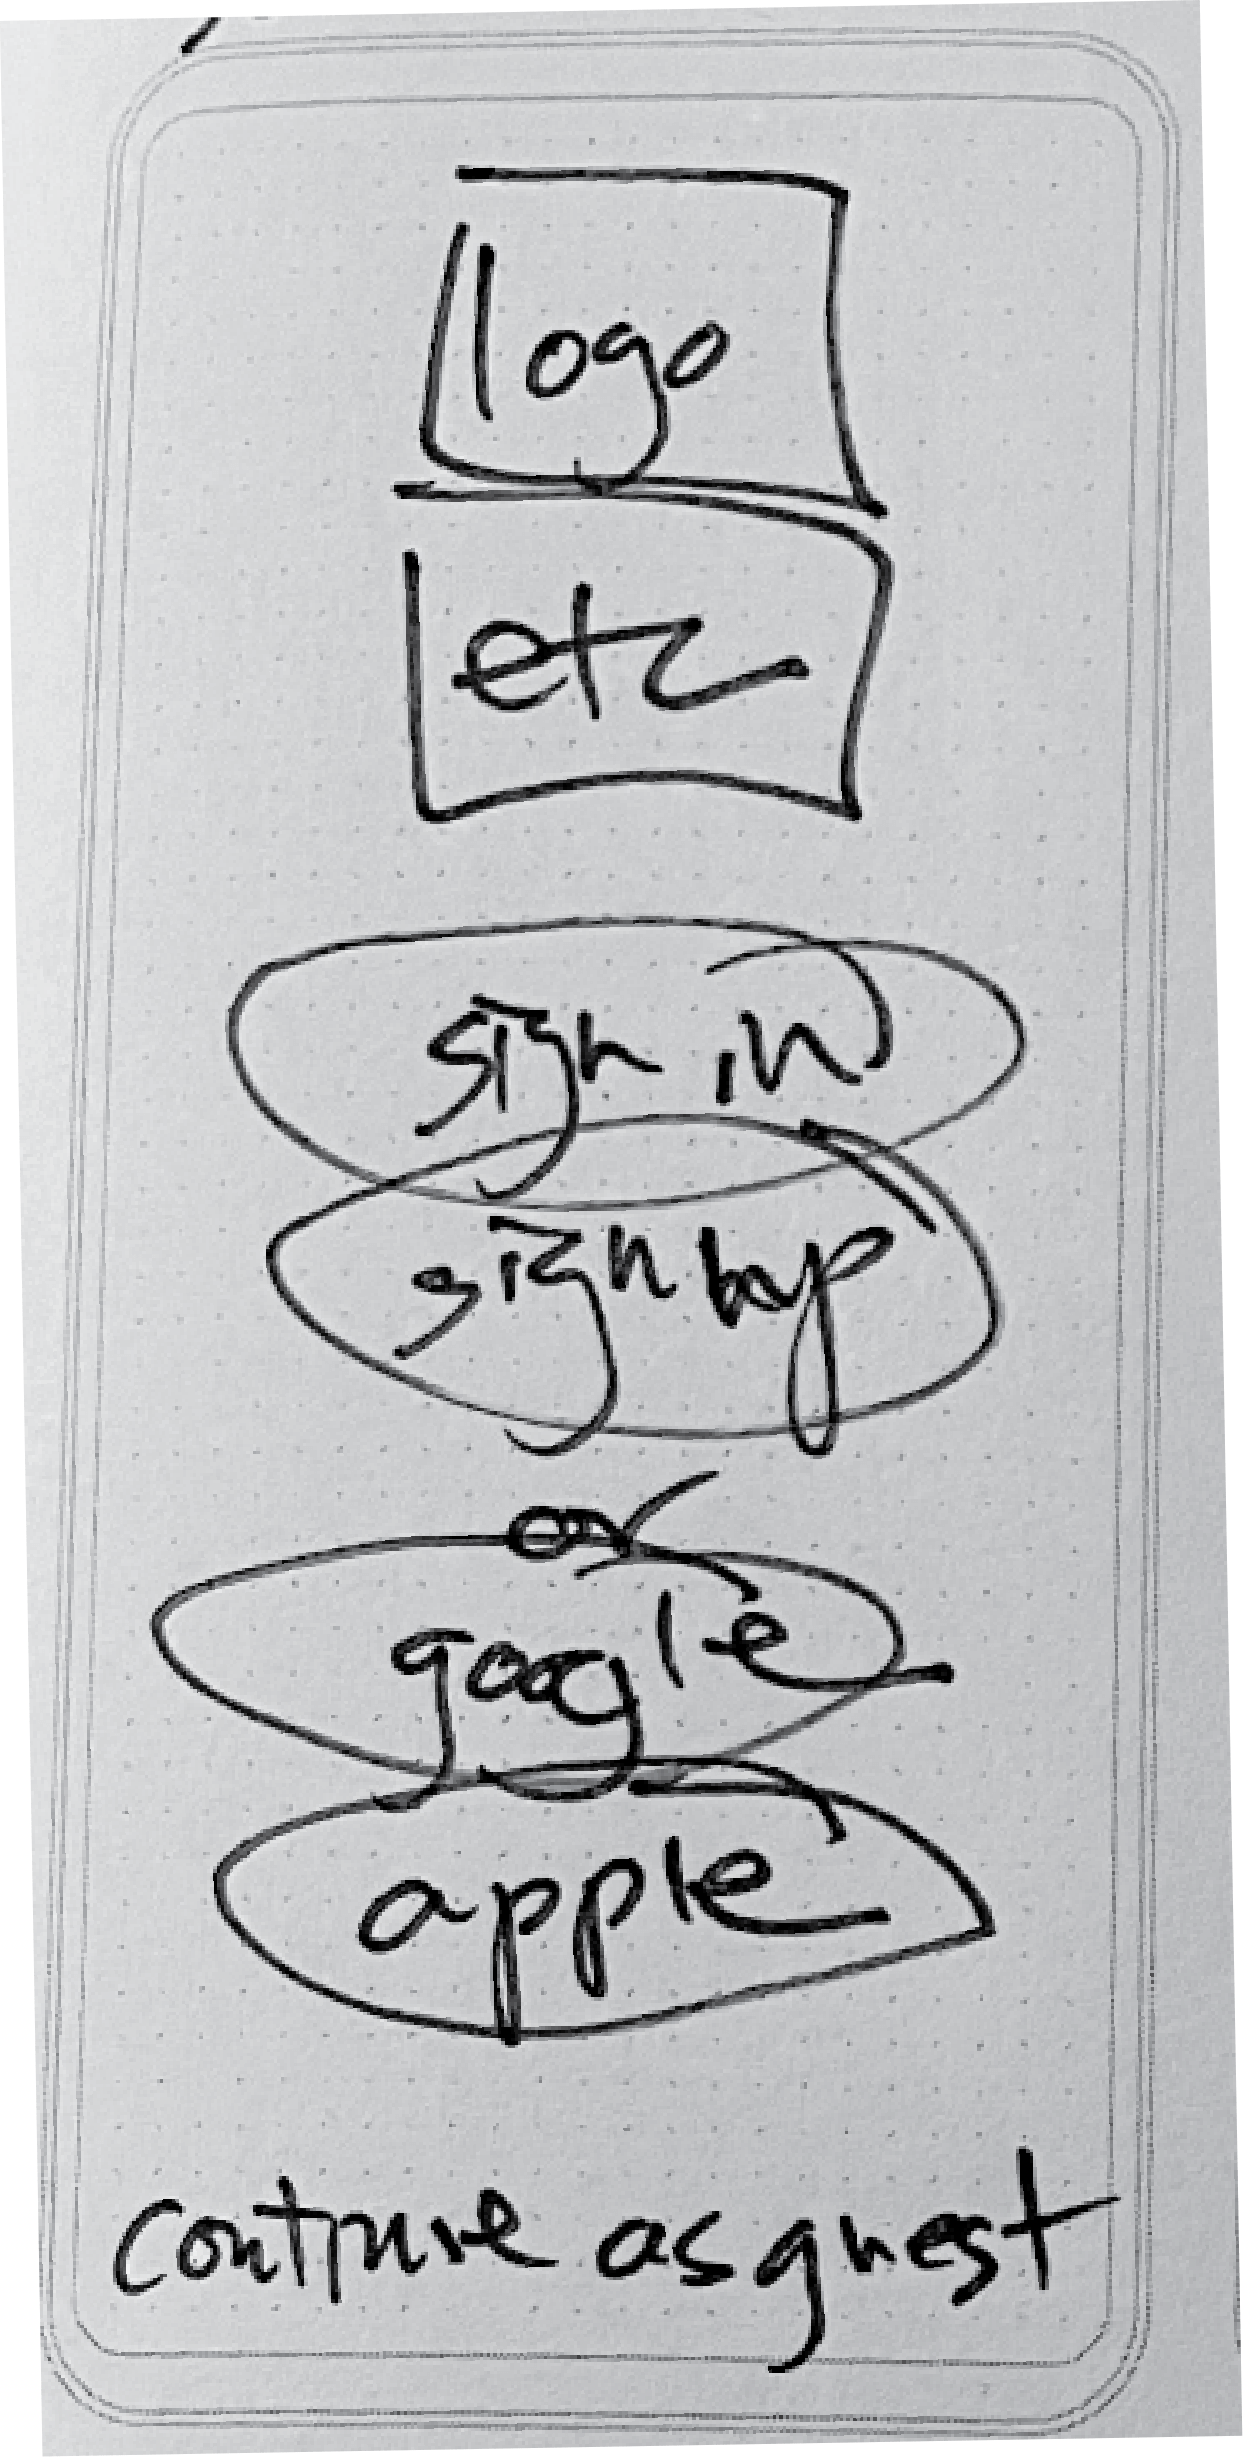 logo
etc
sign in
sign up
or
google
apple
continue as guest